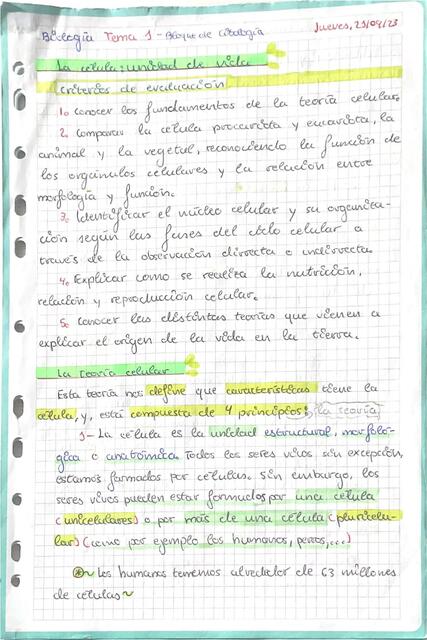 Biología Tema 1 - Bloque de Citología Jueves, 25/09/23
La célula: unidad de vida
Criterios de evaluación
1. Conocer los fundamentos de la teoría celular.
2. Comparar la célula procariota y eucariota, la
animal y la vegetal, reconociendo la función de
los orgánulos celulares y la relación entre
morfología y función.
3. Identificar el núcleo celular y su organiza-
ción según las fases del ciclo celular a
través de la observación directa o indirecta.
4. Explicar como se realiza la nutrición,
relación y reproducción celular.
5. Conocer las distintas teorías que vienen a
explicar el origen de la vida en la tierra.
La teoría celular
Esta teoría nos define que características tiene la
célula, y, está compuesta de 4 principios: la teoría
1- La célula es la unidad estructural, morfoló-
gica o anatómica. Todos los seres vivos sin excepción,
estamos formados por células. Sin embargo, los
seres vivos pueden estar formados por una célula
(unicelulares) o por más de una célula (pluricelu-
lar) (como por ejemplo los humanos, perros,...)
* ~ Los humanos tenemos alrededor de 63 millones
de células ~